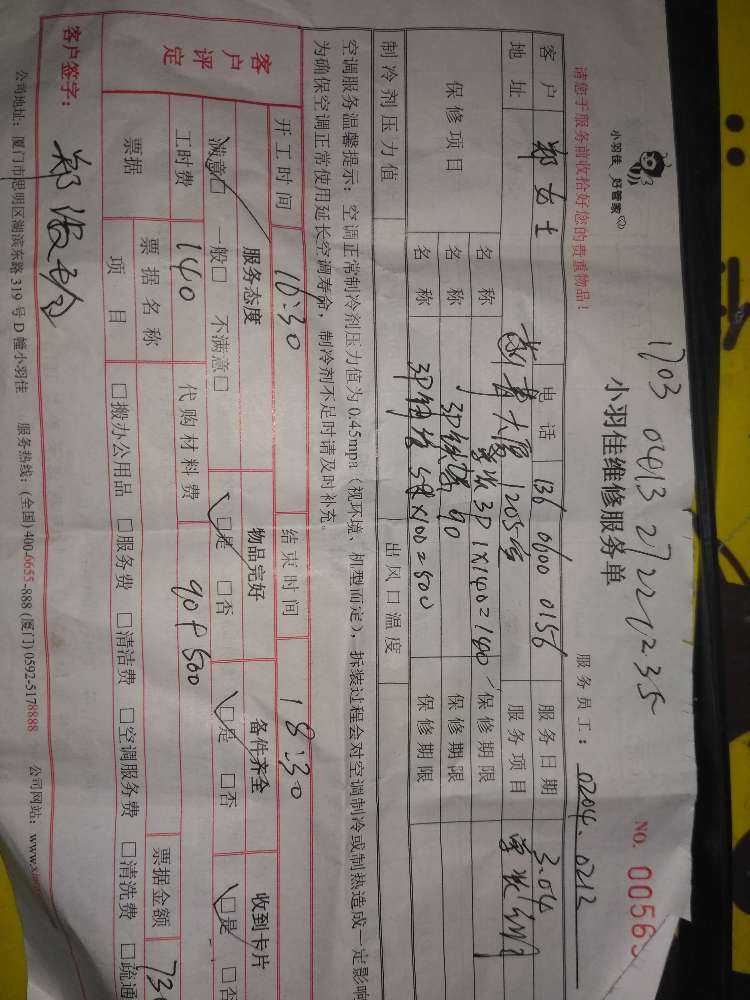 小羽佳 好管家
1703 0413 2722 1235
小羽佳维修服务单
NO. 00565
请您于服务前收拾好您的贵重物品!
服务员工: 0204. 0212
客户 郑女士 电话 136 0600 0156 服务日期 3.04
地址 大厦1205室 服务项目
保修项目 名称 3P 1×140=140 保修期限
名称 90 保修期限
名称 ×100=500 保修期限
制冷剂压力值 出风口温度
空调服务温馨提示: 空调正常制冷剂压力值为 0.45mpa (视环境、机型而定), 拆装过程会对空调制冷或制热造成一定影响
为确保空调正常使用延长空调寿命, 制冷剂不足时请及时补充。
开工时间 16:30 结束时间 18:30
客户评定 服务态度 物品完好 备件齐全 收到卡片
满意□ 一般□ 不满意□ □是 □否 □是 □否 □是 □否
工时费 140 代购材料费 90+500
票据 票据名称 票据金额 730
项目 □搬办公用品 □服务费 □清洁费 □空调服务费 □清洗费 □疏通
客户签字: 郑
公司地址: 厦门市思明区湖滨东路 319 号 D 幢小羽佳 服务热线: (全国) 400-6655-888 (厦门) 0592-5178888 公司网站: www.